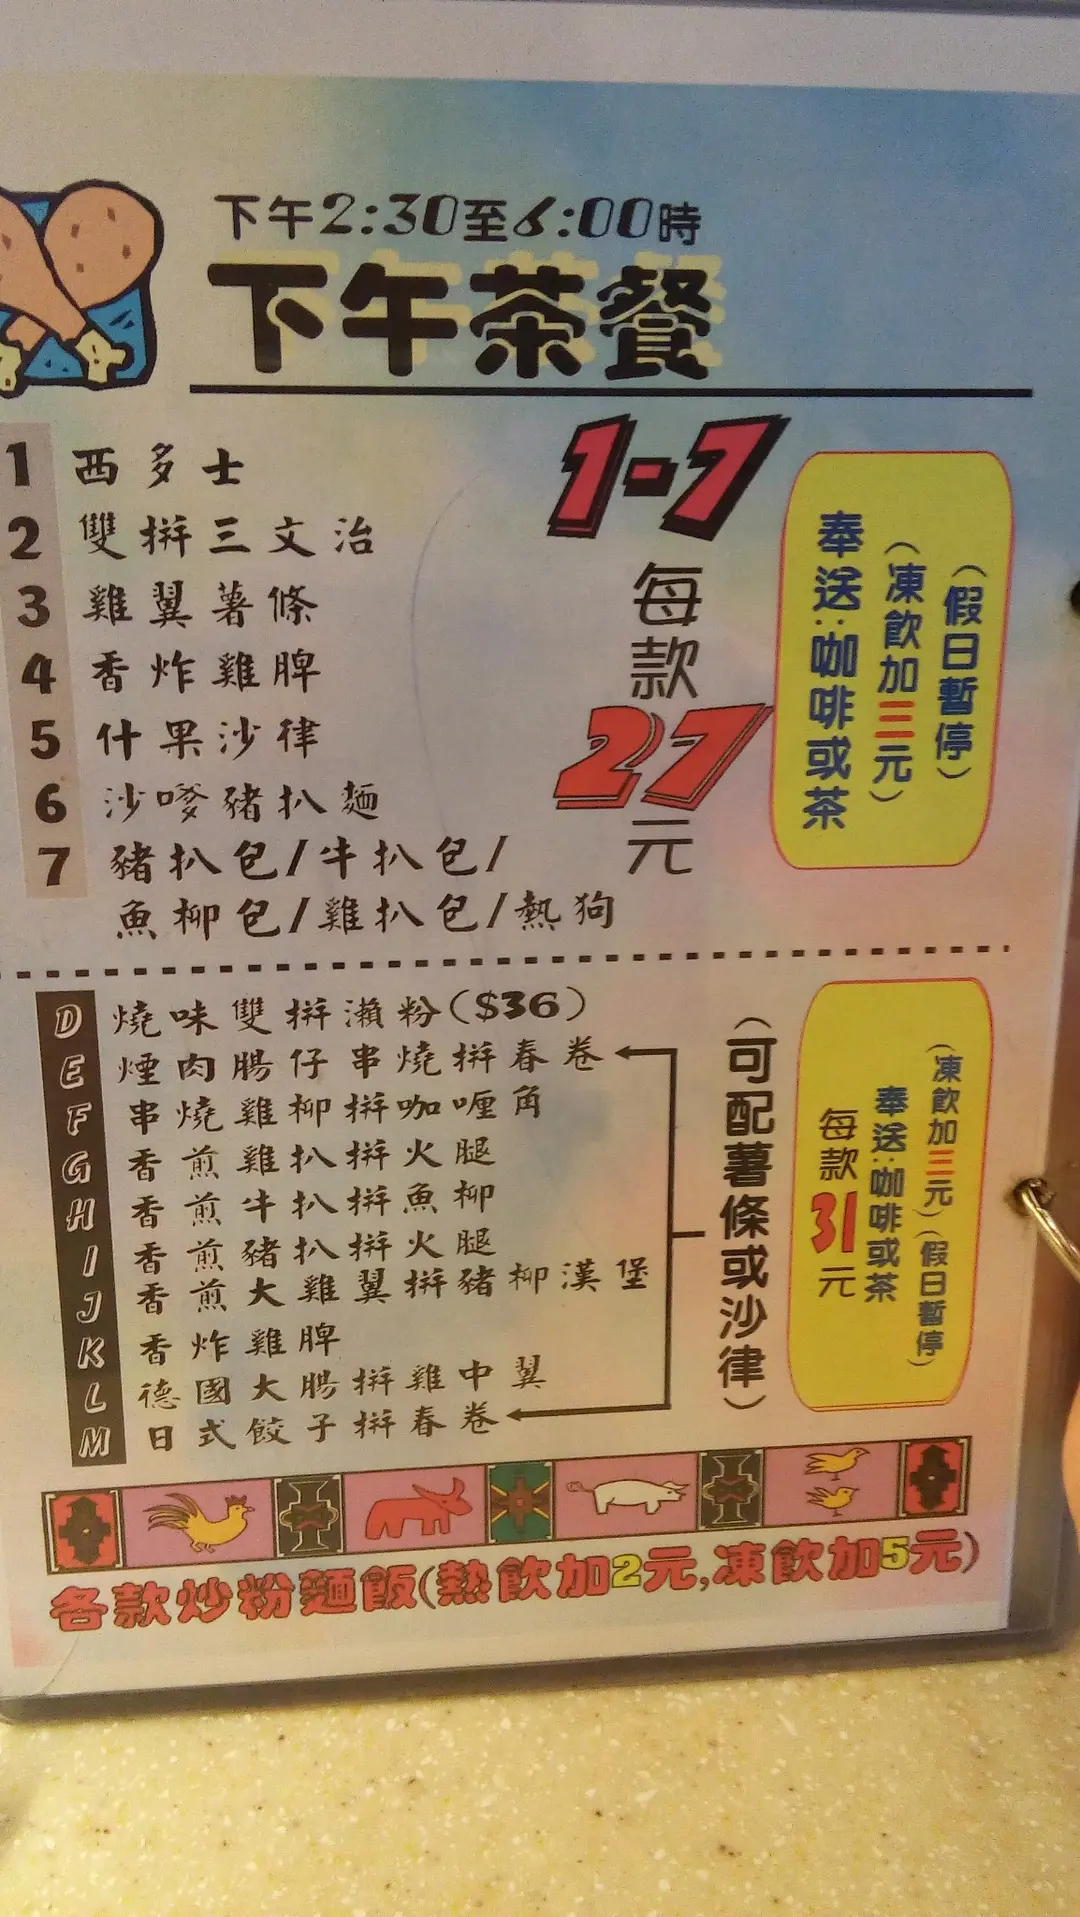 下午2:30至6:00時
下午茶餐
1 西多士
2 雙拼三文治
3 雞翼薯條
4 香炸雞脾
5 什果沙律
6 沙嗲豬扒麵
7 豬扒包/牛扒包/
魚柳包/雞扒包/熱狗
1-7
每款
27
元
(假日暫停)
(凍飲加三元)
奉送:咖啡或茶
D 燒味雙拼瀨粉($36)
E 煙肉腸仔串燒拼春卷
F 串燒雞柳拼咖喱角
G 香煎雞扒拼火腿
H 香煎牛扒拼魚柳
I 香煎豬扒拼火腿
J 香煎大雞翼拼豬柳漢堡
K 香炸雞脾
L 德國大腸拼雞中翼
M 日式餃子拼春卷
(可配薯條或沙律)
(凍飲加三元)(假日暫停)
奉送:咖啡或茶
每款31元
各款炒粉麵飯(熱飲加2元,凍飲加5元)